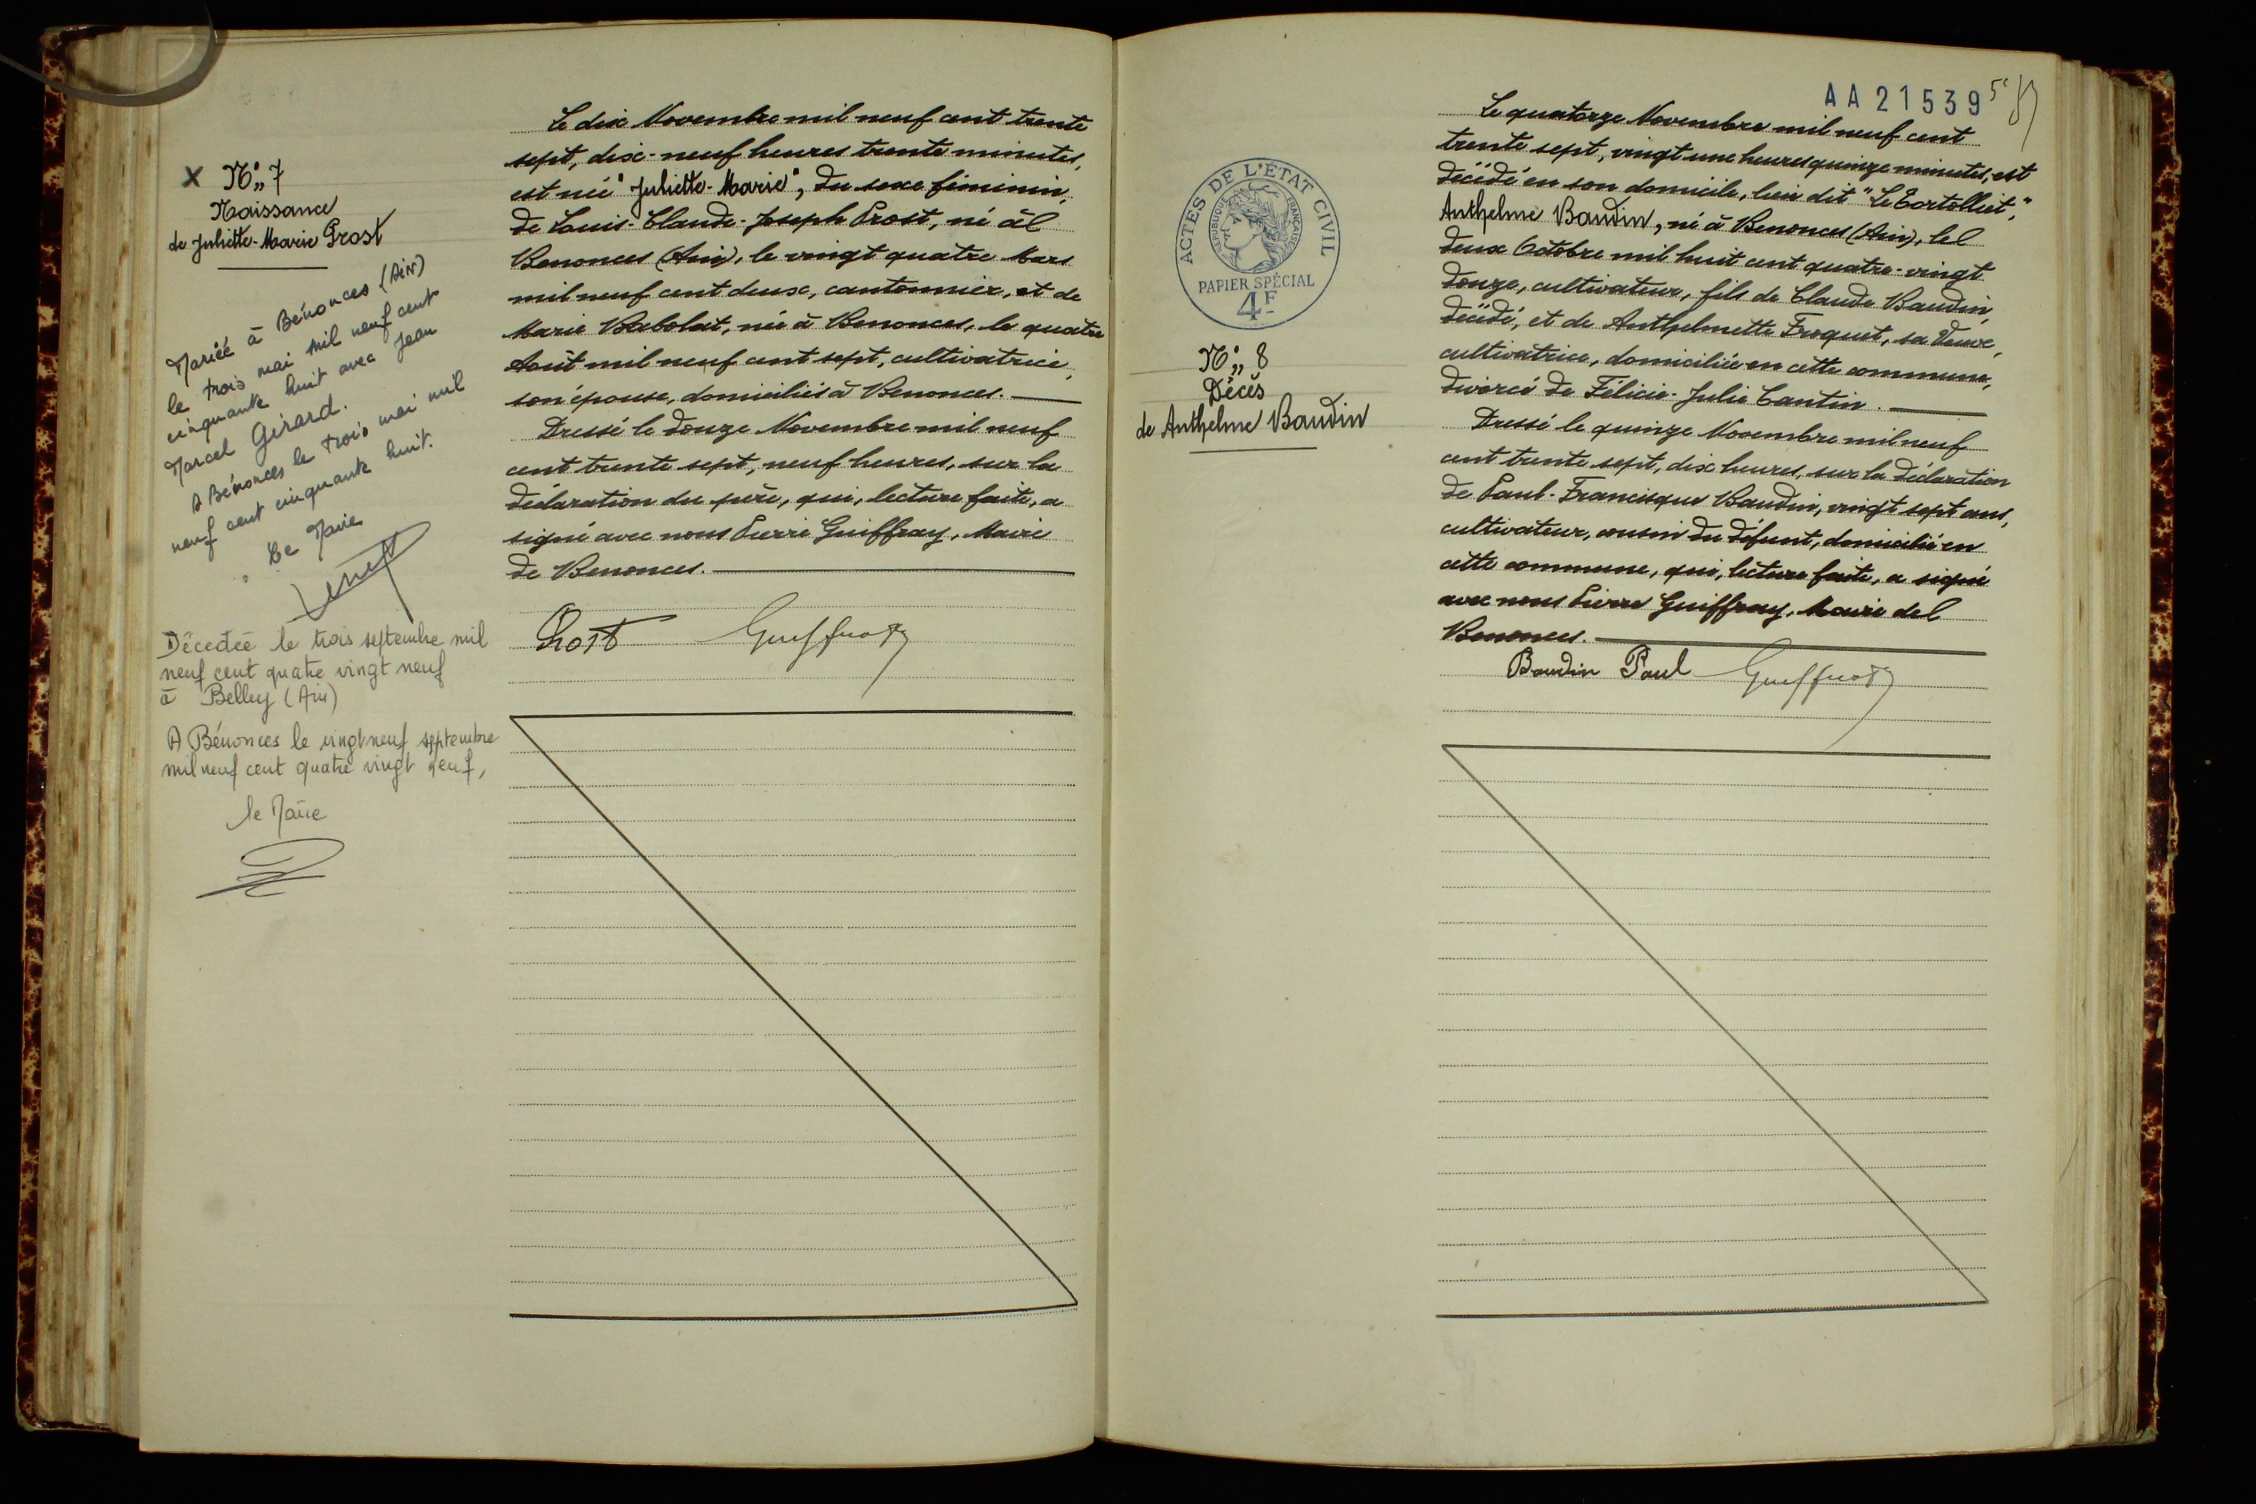 X N° 7
Naissance
de Juliette-Marie Prost
Mariée à Bénonces (Ain)
le trois mai mil neuf cent
cinquante huit avec Jean
Marcel Girard.
A Bénonces le trois mai mil
neuf cent cinquante huit.
Le Maire
Décedée le trois septembre mil
neuf cent quatre vingt neuf
à Belley (Ain)
A Bénonces le vingt neuf septembre
mil neuf cent quatre vingt neuf,
le Maire
Le dix Novembre mil neuf cent trente
sept, dix-neuf heures trente minutes,
est née "Juliette-Marie", du sexe féminin,
de Louis-Claude-Joseph Prost, né à
Benonces (Ain), le vingt quatre Mars
mil neuf cent deux, cantonnier, et de
Marie Babolat, née à Benonces, le quatre
Août mil neuf cent sept, cultivatrice,
son épouse, domiciliés à Benonces.
Dressé le douze Novembre mil neuf
cent trente sept, neuf heures, sur la
déclaration du père, qui, lecture faite, a
signé avec nous Pierre Guiffray, Maire
de Benonces.
Prost Guiffray
AA21539
ACTES DE L'ÉTAT CIVIL
RÉPUBLIQUE FRANÇAISE
PAPIER SPÉCIAL
4F
N° 8
Décès
de Anthelme Baudin
Le quatorze Novembre mil neuf cent
trente sept, vingt une heures quinze minutes, est
décédé en son domicile, lieu dit "Le
Anthelme Baudin, né à Benonces (Ain), le
deux Octobre mil huit cent quatre-vingt
douze, cultivateur, fils de Claude Baudin,
décédé, et de Anthelmette Froquet, sa Veuve,
cultivatrice, domiciliée en cette commune,
divorcé de Félicie-Julie Cantin.
Dressé le quinze Novembre mil neuf
cent trente sept, dix heures, sur la déclaration
de Paul-Francisque Baudin, vingt sept ans,
cultivateur, cousin du défunt, domicilié en
cette commune, qui, lecture faite, a signé
avec nous Pierre Guiffray, Maire de
Benonces.
Baudin Paul Guiffray